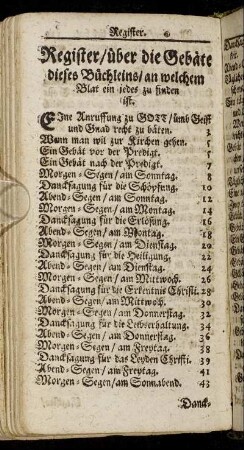 Register.
Register/ über die Gebäte
dieses Büchleins/ an welchem
Blat ein jedes zu finden
ist.
Eine Anruffung zu GOTT/ umb Geist
und Gnad recht zu bäten. 3
Wann man wil zur Kirchen gehen. 5
Ein Gebät vor der Predigt.
Ein Gebät nach der Predigt. 7
Morgen-Segen/ am Sonntag. 8
Dancksagung für die Schöpfung. 10
Abend-Segen/ am Sonntag. 12
Morgen-Segen/ am Montag. 14
Dancksagung für die Erlösung. 16
Abend-Segen/ am Montag. 18
Morgen-Segen/ am Dienstag. 20
Dancksagung für die Heiligung. 22
Abend-Segen/ am Dienstag. 24
Morgen-Segen/ am Mittwoch. 26
Dancksagung für die Erkentnis Christi. 28
Abend-Segen/ am Mittwoch. 30
Morgen-Segen/ am Donnerstag. 32
Dancksagung für die Leibserhaltung. 34
Abend-Segen/ am Donnerstag. 36
Morgen-Segen/ am Freytag. 38
Dancksagung für das Leyden Christi. 39
Abend-Segen/ am Freytag. 41
Morgen-Segen/ am Sonnabend. 43
Danck-